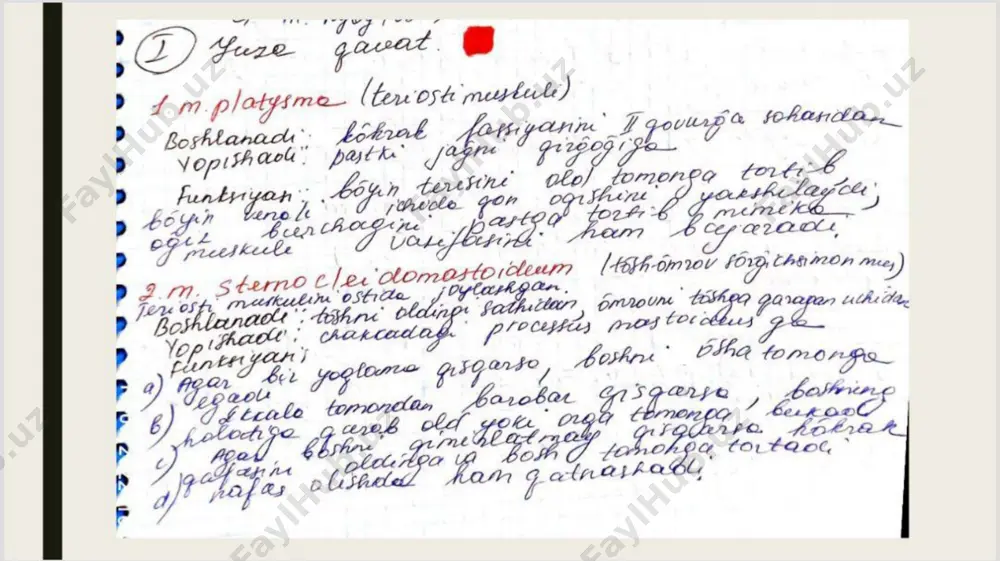 I Yuza qavat.
1. m. platysma (teri osti muskuli)
Boshlanadi: kökrak fassiyasini II qovurğa sohasidan
Yopishadi: pastki jağni qirğoğiga
Funksiyasi: böyin terisini old tomonga tortib,
böyin venali ichida qon oqishini yaxshilaydi,
oğiz burchagini pastga tortib mimika
muskuli vasifasini ham bajaradi.
2. m. sternocleidomastoideum (tösh-ömrov sörğichsimon mus)
Teri osti muskulini ostida joylashgan.
Boshlanadi: töshni oldingi sathidan, ömrovni töshga qaragan uchidan
Yopishadi: chakkadagi processus mastoideus ga
Funksiyasi:
a) Agar bir yoqlama qisqarsa, boshni ösha tomonga
egadi
b) Ikkala tomondan barobar qisqarsa, boshning
holatiga qarab old yoki orqa tomonga
c) Agar boshni qimirlatmay qisqarsa kökrak
qafasini oldinga va bosh tomonga tortadi
d) nafas olishda ham qatnashadi.
FaylHub.uz
FaylHub.uz
FaylHub.uz
FaylHub.uz
FaylHub.uz
FaylHub.uz